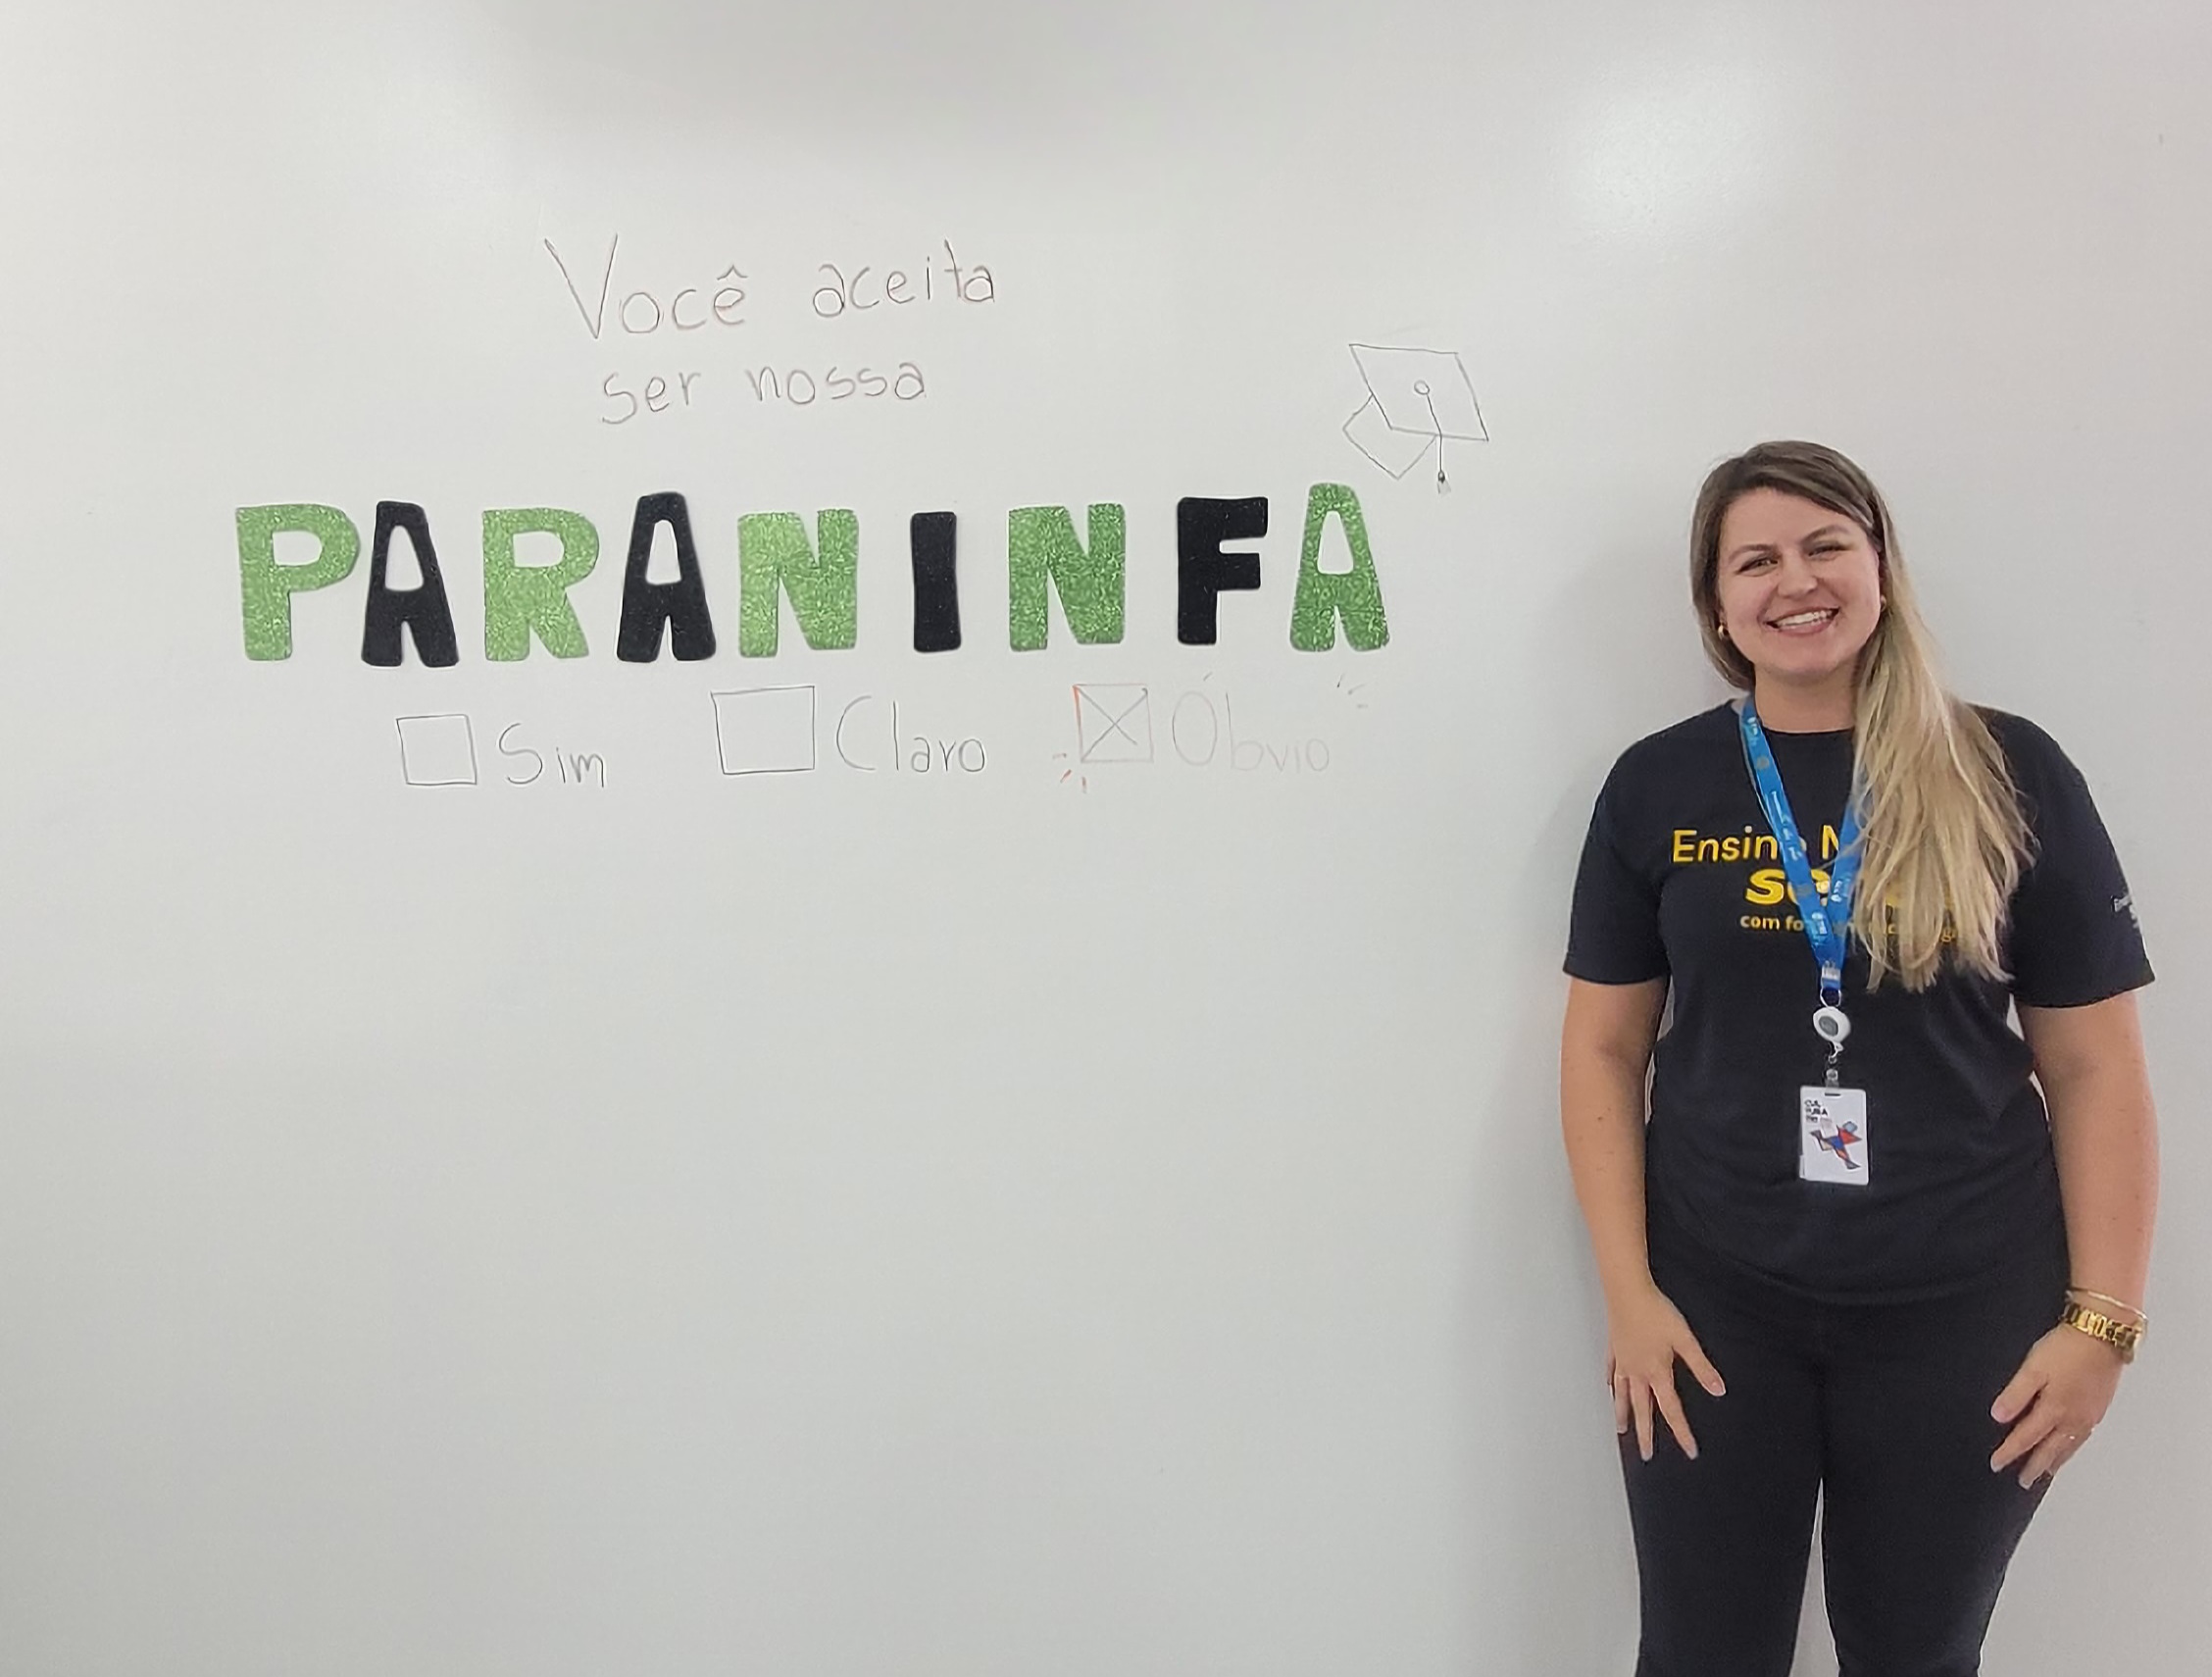 Você aceita
ser nossa
PARANINFA
Sim Claro Óbvio
Ensino M
se
com fo